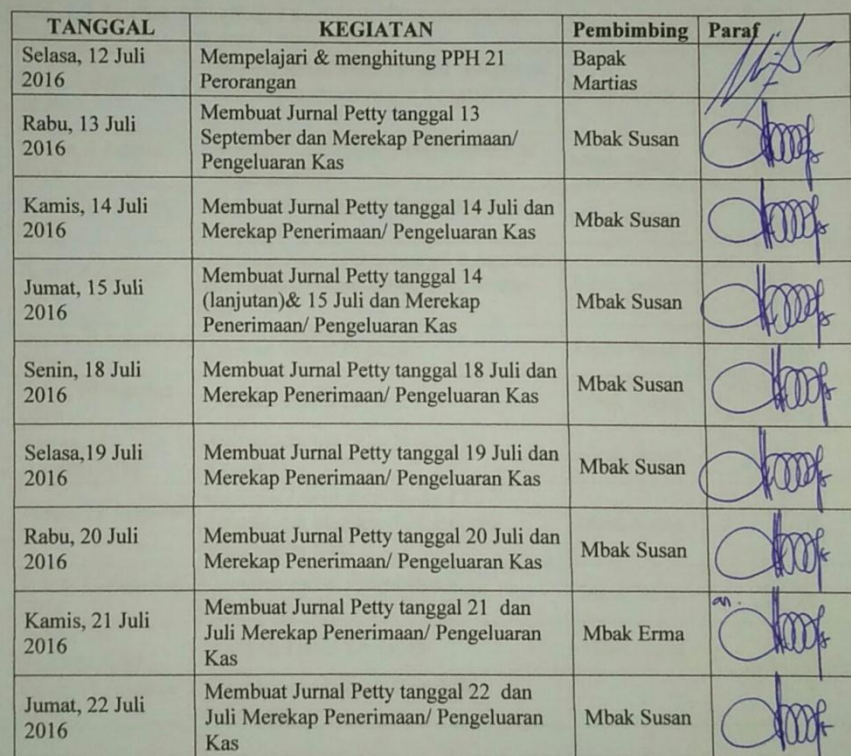 TANGGAL KEGIATAN Pembimbing Paraf
Selasa, 12 Juli 2016 Mempelajari & menghitung PPH 21 Perorangan Bapak Martias
Rabu, 13 Juli 2016 Membuat Jurnal Petty tanggal 13 September dan Merekap Penerimaan/ Pengeluaran Kas Mbak Susan
Kamis, 14 Juli 2016 Membuat Jurnal Petty tanggal 14 Juli dan Merekap Penerimaan/ Pengeluaran Kas Mbak Susan
Jumat, 15 Juli 2016 Membuat Jurnal Petty tanggal 14 (lanjutan)& 15 Juli dan Merekap Penerimaan/ Pengeluaran Kas Mbak Susan
Senin, 18 Juli 2016 Membuat Jurnal Petty tanggal 18 Juli dan Merekap Penerimaan/ Pengeluaran Kas Mbak Susan
Selasa,19 Juli 2016 Membuat Jurnal Petty tanggal 19 Juli dan Merekap Penerimaan/ Pengeluaran Kas Mbak Susan
Rabu, 20 Juli 2016 Membuat Jurnal Petty tanggal 20 Juli dan Merekap Penerimaan/ Pengeluaran Kas Mbak Susan
Kamis, 21 Juli 2016 Membuat Jurnal Petty tanggal 21 dan Juli Merekap Penerimaan/ Pengeluaran Kas Mbak Erma an.
Jumat, 22 Juli 2016 Membuat Jurnal Petty tanggal 22 dan Juli Merekap Penerimaan/ Pengeluaran Kas Mbak Susan